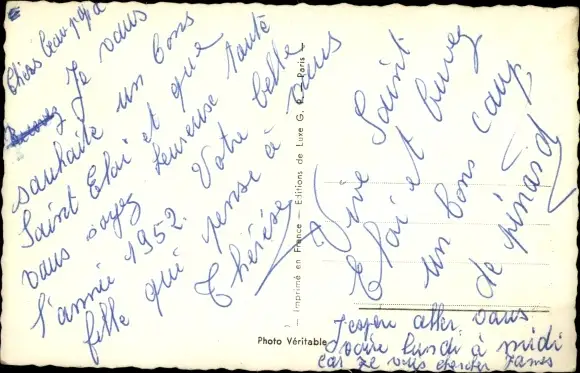 Chers beau papa
Je vous
souhaite un bons
Saint Eloi et que
vous soyez heureuse toute
l'année 1952. Votre belle
fille qui pense à vous
Thérèse
Vive Saint
Eloi et buvez
un bons coup
de pinard
J'espère aller vous
voire lundi à midi
car je vous chercher
Photo Véritable
Imprimé en France — Editions de Luxe G. Paris